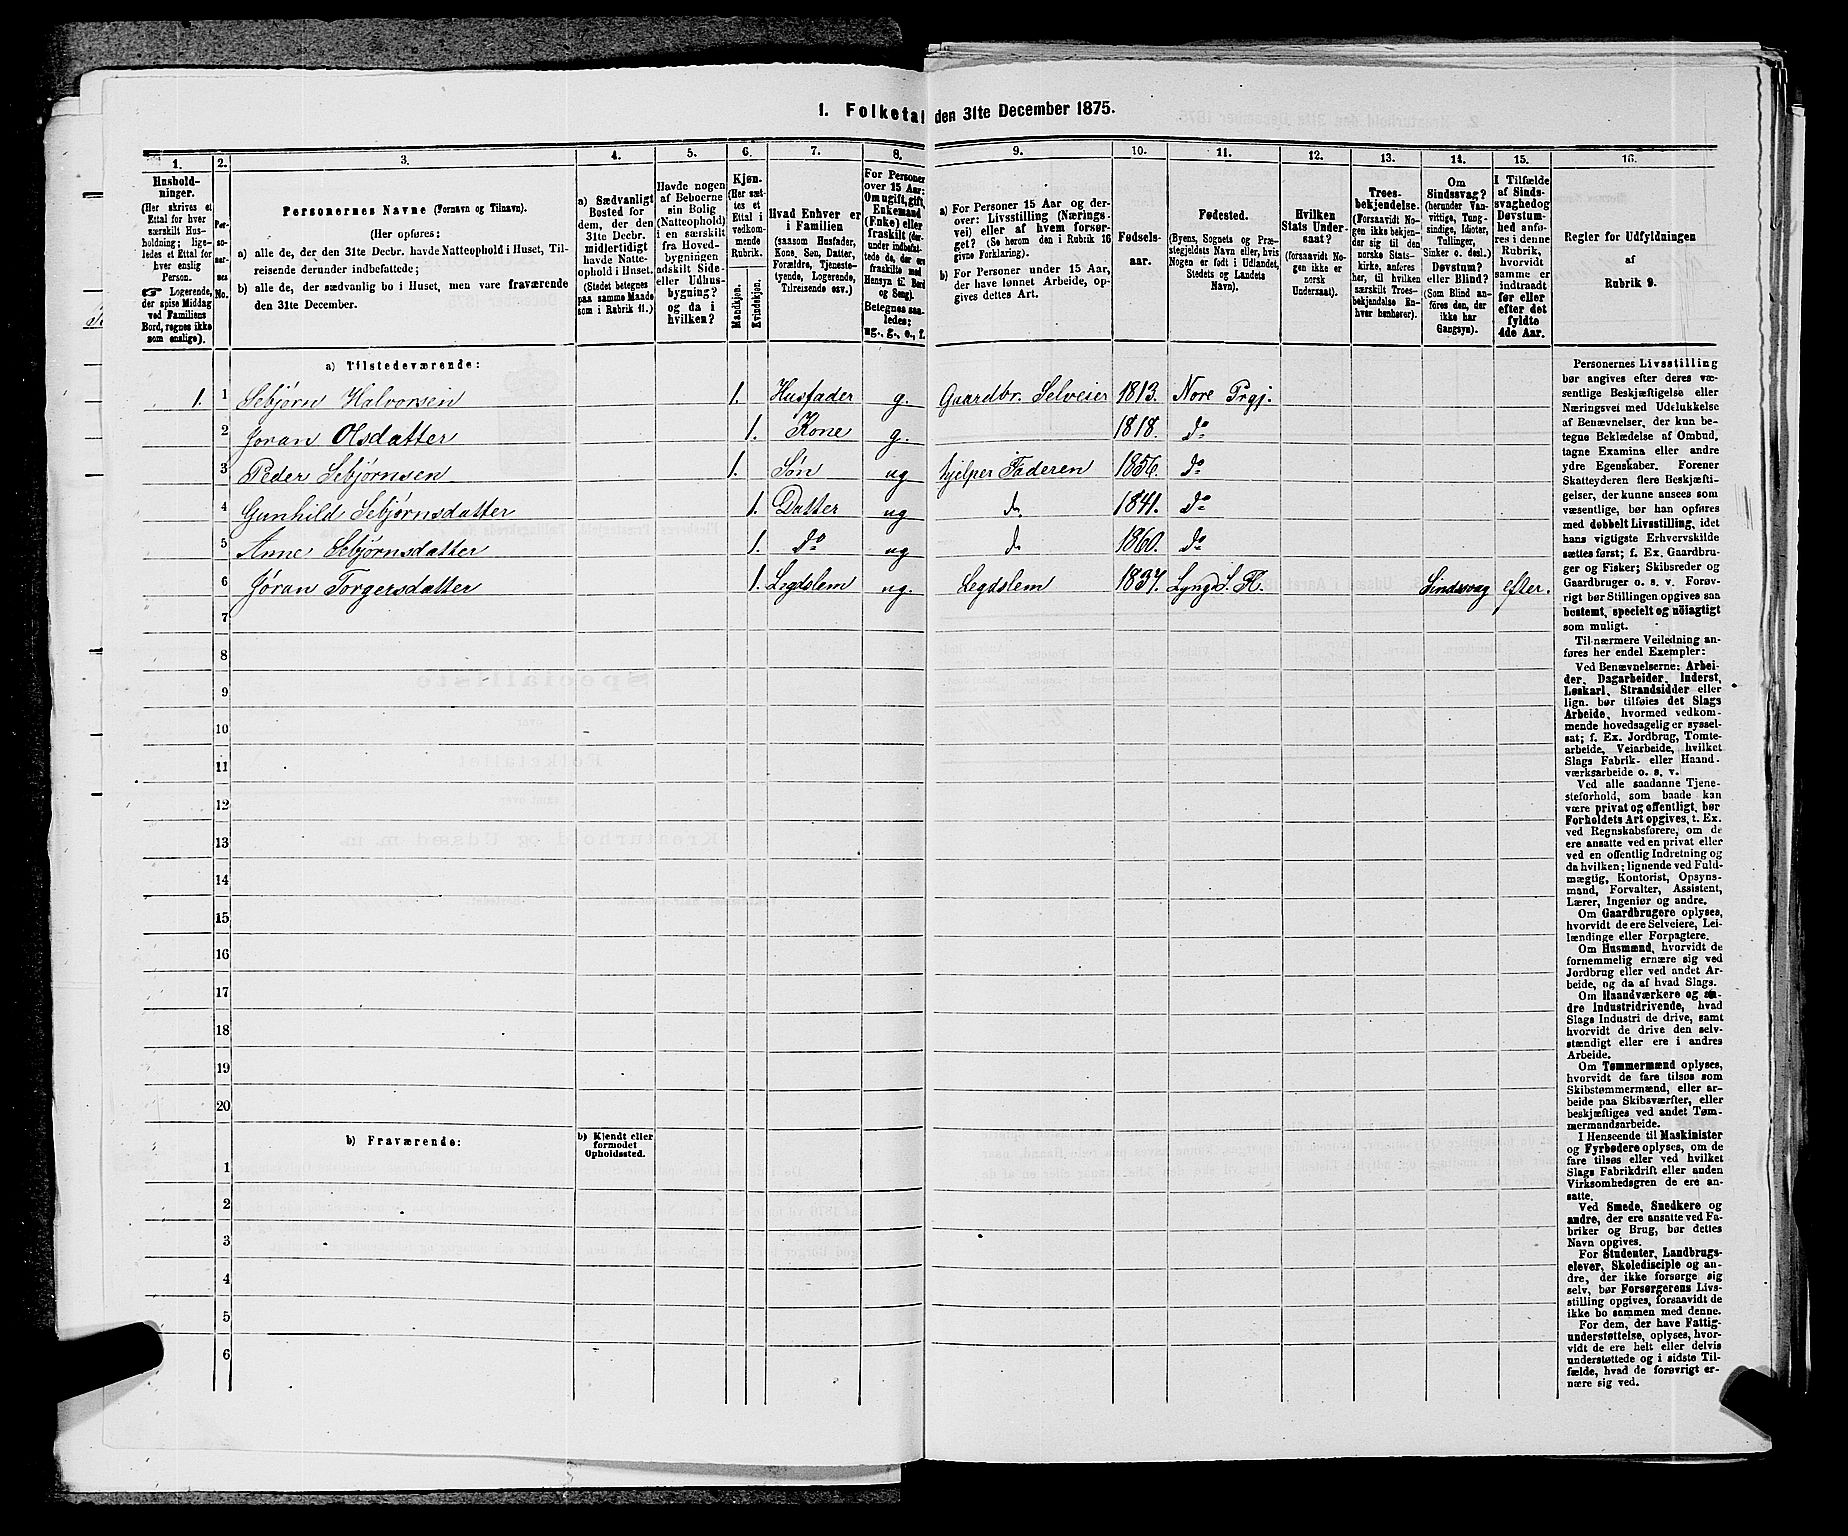 1. Folketal den 31te December 1875.
1.
Hushold-
ninger.
(Her skrives et
Ettal for hver
særskilt Hus-
holdning; lige-
ledes et Ettal for
hver enslig
Person.
☞ Logerende,
der spise Middag
ved Familiens
Bord, regnes ikke
som enslige).
2.
Per-
so-
ner-
nes
No.
3.
Personernes Navne (Fornavn og Tilnavn).
(Her opføres:
a) alle de, der den 31te Decbr. havde Natteophold i Huset, Til-
reisende derunder indbefattede;
b) alle de, der sædvanlig bo i Huset, men vare fraværende
den 31te December.
4.
a) Sædvanligt
Bosted for
dem, der den
31te Decbr.
midlertidigt
havde Natte-
ophold i Huset.
(Stedet betegnes
paa samme Maade
som i Rubrik 11.)
5.
Havde nogen
af Beboerne
sin Bolig
(Natteophold)
i en særskilt
fra Hoved-
bygningen
adskilt Side-
eller Udhus-
bygning?
og da i
hvilken?
6.
Kjøn.
(Her sæt-
tes et
Ettal i
vedkom-
mende
Rubrik.
Mandkjøn.
Kvindekjøn.
7.
Hvad Enhver er
i Familien
(saasom Husfader,
Kone, Søn, Datter,
Forældre, Tjeneste-
tyende, Logerende,
Tilreisende osv.)
8.
For Personer
over 15 Aar:
Om ugift, gift,
Enkemand
(Enke) eller
fraskilt (der-
under indbefat-
tede de, der ere
fraskilte med
Hensyn til Bord
og Seng).
Betegnes saa-
ledes:
ug., g., e., f.
9.
a) For Personer 15 Aar og der-
over: Livsstilling (Nærings-
vei) eller af hvem forsør-
get? (Se herom den i Rubrik 16
givne Forklaring).
b) For Personer under 15 Aar,
der have lønnet Arbeide, op-
gives dettes Art.
10.
Fødsels-
aar.
11.
Fødested.
(Byens, Sognets og Præ-
stegjeldets Navn eller, hvis
Nogen er født i Udlandet,
Stedets og Landets
Navn).
12.
Hvilken
Stats Under-
saat?
(forsaavidt No-
gen ikke er
norsk
Undersaat).
13.
Troes-
bekjendelse.
(Forsaavidt No-
gen ikke bekjen-
der sig til den
norske Stats-
kirke, anføres
her, til hvilken
særskilt Troes-
bekjendelse En-
hver henhører).
14.
Om
Sindssvag?
(herunder Van-
vittige, Tung-
sindige, Idioter,
Tullinger,
Sinker o. desl.)
Døvstum?
eller Blind?
(Som Blind an-
føres den, der
ikke har
Gangsyn).
15.
I Tilfælde
af Sinds-
svaghed og
Døvstum-
hed anfø-
res i denne
Rubrik,
hvorvidt
samme er
indtraadt
før eller
efter det
fyldte
4de Aar.
16.
Regler for Udfyldningen
af
Rubrik 9.
a) Tilstedeværende:
1. 1 Sebjørn Halvorsen 1. Husfader g. Gaardbr. Selveier 1813. Nore Prgj.
2 Jøran Olsdatter 1. Kone g. 1818. do
3 Peder Sebjørnsen 1. Søn ug hjelper Faderen 1856. do
4 Gunhild Sebjørnsdatter 1. Datter ug d. 1841. do
5 Anne Sebjørnsdatter 1. do ug d 1860. do
6 Jøran Torgersdatter 1. Legdslem ug. Legdslem 1837. Lyngd. S. K. Sindssvag efter.
7
8
9
10
11
12
13
14
15
16
17
18
19
20
b) Fraværende:
b) Kjendt eller
formodet
Opholdssted.
1
2
3
4
5
6
Personernes Livsstilling
bør angives efter deres væ-
sentlige Beskjæftigelse eller
Næringsvei med Udelukkelse
af Benævnelser, der kun be-
tegne Beklædelse af Ombud,
tagne Examina eller andre
ydre Egenskaber. Forener
Skatteyderen flere Beskjæfti-
gelser, der kunne ansees som
væsentlige, bør han opføres
med dobbelt Livsstilling, idet
hans vigtigste Erhvervskilde
sættes først; f. Ex. Gaardbru-
ger og Fisker; Skibsreder og
Gaardbruger o. s. v. Forøv-
rigt bør Stillingen opgives saa
bestemt, specielt og nöiagtigt
som muligt.
Til nærmere Veiledning an-
føres her endel Exempler:
Ved Benævnelserne: Arbei-
der, Dagarbeider, Inderst,
Løskarl, Strandsidder eller
lign. bør tilføies det Slags
Arbeide, hvormed vedkom-
mende hovedsagelig er syssel-
sat; f. Ex. Jordbrug, Tomte-
arbeide, Veiarbeide, hvilket
Slags Fabrik- eller Haand-
værksarbeide o. s. v.
Ved alle saadanne Tjene-
steforhold, som baade kan
være privat og offentligt, bør
Forholdets Art opgives, t. Ex.
ved Regnskabsførere, om de
ere ansatte ved en privat eller
ved en offentlig Indretning og
da hvilken; lignende ved Fuld-
mægtig, Kontorist, Opsyns-
mand, Forvalter, Assistent,
Lærer, Ingeniør og andre.
Om Gaardbrugere oplyses,
hvorvidt de ere Selveiere, Lei-
lændinge eller Forpagtere.
Om Husmænd, hvorvidt de
fornemmelig ernære sig ved
Jordbrug eller ved andet Ar-
beide, og da af hvad Slags.
Om Haandværkere og an-
dre Industridrivende, hvad
Slags Industri de drive, samt
hvorvidt de drive den selv-
stændigt eller ere i andres
Arbeide.
Om Tømmermænd oplyses,
hvorvidt de fare tilsøs som
Skibstømmermænd, eller ar-
beide paa Skibsværfter, eller
beskjæftiges ved andet Tøm-
mermandsarbeide.
I Henseende til Maskinister
og Fyrbødere oplyses, om de
fare tilsøs eller ved hvilket
Slags Fabrikdrift eller anden
Virksomhedsgren de ere an-
satte.
Ved Smede, Snedkere og
andre, der ere ansatte ved Fa-
briker og Brug, bør dettes
Navn opgives.
For Studenter, Landbrugs-
elever, Skoledisciple og an-
dre, der ikke forsørge sig
selv, bør Forsørgerens Livs-
stilling opgives, forsaavidt de
ikke bo sammen med denne.
For dem, der have Fattig-
understøttelse, oplyses, hvor-
vidt de ere helt eller delvis
understøttede og i sidste Til-
fælde, hvad de forøvrigt er-
nære sig ved.